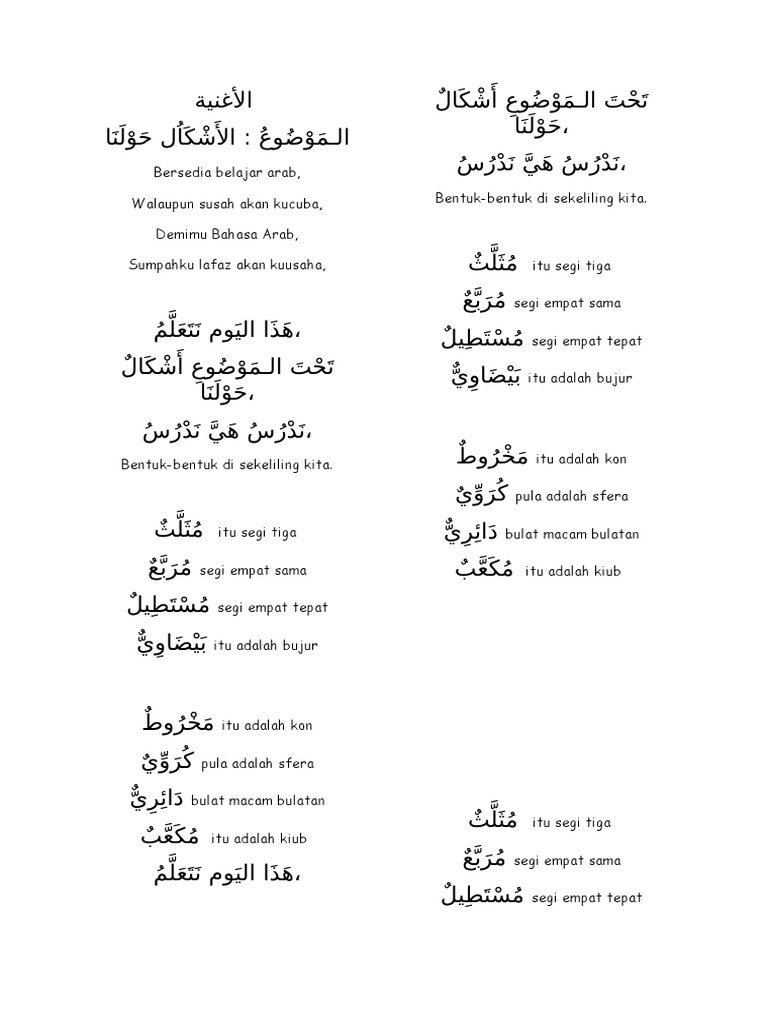 الأغنية
الـمَوْضُوعُ : الأَشْكَاُل حَوْلَنَا
Bersedia belajar arab,
Walaupun susah akan kucuba,
Demimu Bahasa Arab,
Sumpahku lafaz akan kuusaha,
هَذَا اليَوم نَتَعَلَّمُ،
تَحْتَ الـمَوْضُوعِ أَشْكَالٌ
حَوْلَنَا،
نَدْرُسُ هَيَّ نَدْرُسُ،
Bentuk-bentuk di sekeliling kita.
مُثَلَّثٌ itu segi tiga
مُرَبَّعٌ segi empat sama
مُسْتَطِيلٌ segi empat tepat
بَيْضَاوِيٌّ itu adalah bujur
مَخْرُوطٌ itu adalah kon
كُرَوِّيٌ pula adalah sfera
دَائِرِيٌّ bulat macam bulatan
مُكَعَّبٌ itu adalah kiub
هَذَا اليَوم نَتَعَلَّمُ،
تَحْتَ الـمَوْضُوعِ أَشْكَالٌ
حَوْلَنَا،
نَدْرُسُ هَيَّ نَدْرُسُ،
Bentuk-bentuk di sekeliling kita.
مُثَلَّثٌ itu segi tiga
مُرَبَّعٌ segi empat sama
مُسْتَطِيلٌ segi empat tepat
بَيْضَاوِيٌّ itu adalah bujur
مَخْرُوطٌ itu adalah kon
كُرَوِّيٌ pula adalah sfera
دَائِرِيٌّ bulat macam bulatan
مُكَعَّبٌ itu adalah kiub
مُثَلَّثٌ itu segi tiga
مُرَبَّعٌ segi empat sama
مُسْتَطِيلٌ segi empat tepat